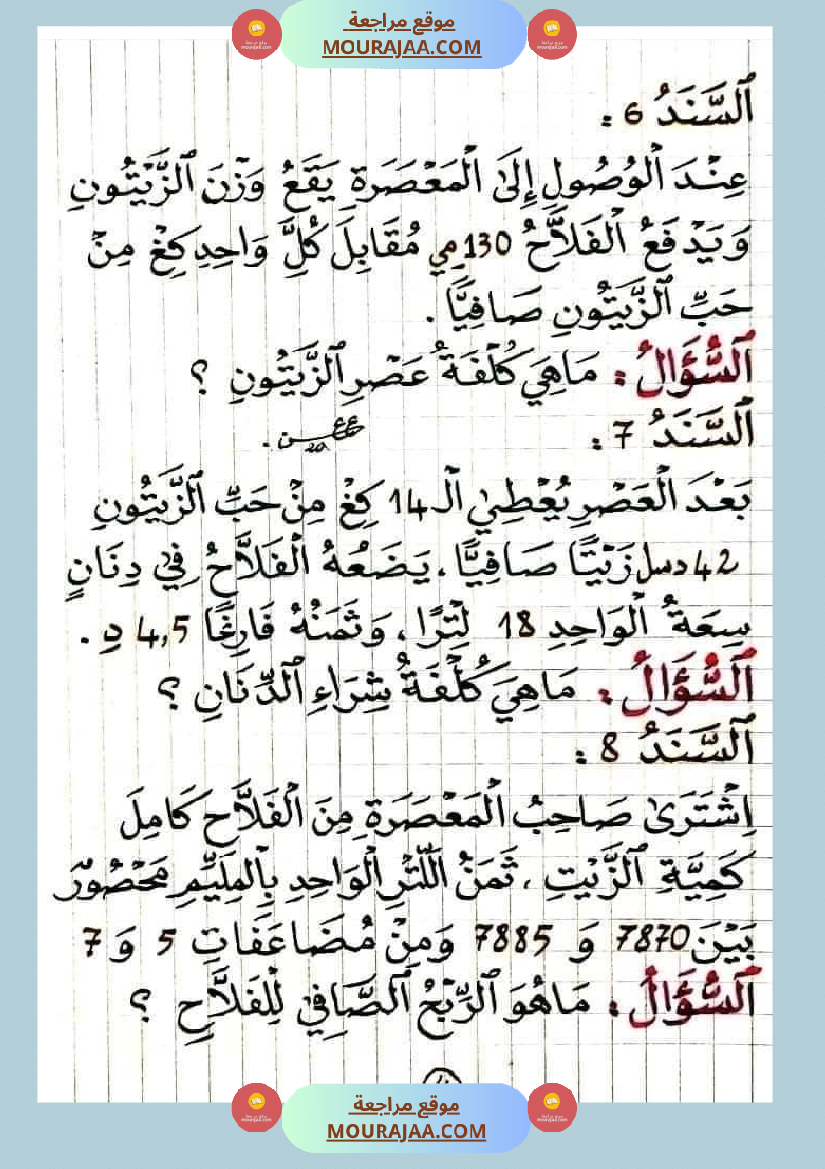 موقع مراجعة
MOURAJAA.COM
اَلسَّنَدُ 6 :
عِنْدَ الْوُصُولِ إِلَى الْمَعْصَرَةِ يَقَعُ وَزْنَ الزَّيْتُونِ
وَ يَدْفَعُ الْفَلاَّحُ 130 مي مُقَابِلَ كُلَّ وَاحِدِ كِغْ مِنْ
حَبِّ الزَّيْتُونِ صَافِيًّا .
اَلسُّؤَالُ : مَاهِيَ كُلْفَةُ عَصْرِ الزَّيْتُونِ ؟
اَلسَّنَدُ 7 :
بَعْدَ الْعَصْرِ يُعْطِي الْـ 14 كِغْ مِنْ حَبِّ الزَّيْتُونِ
42 دسل زَيْتًا صَافِيًّا ، يَضَعُهُ الْفَلاَّحُ فِي دِنَانٍ
سِعَةُ الْوَاحِدِ 18 لِتْرًا ، وَثَمَنُهُ فَارِغًا 4,5 دِ .
اَلسُّؤَالُ : مَاهِيَ كُلْفَةُ شِرَاءِ الدِّنَانِ ؟
اَلسَّنَدُ 8 :
اِشْتَرَى صَاحِبُ الْمَعْصَرَةِ مِنَ الْفَلاَّحِ كَامِلَ
كَمِيَّةِ الزَّيْتِ ، ثَمَنُ اللّتْرِ الْوَاحِدِ بِالْمِلِيِّمِ مَحْصُورٌ
بَيْنَ 7870 وَ 7885 وَمِنْ مُضَاعَفَاتِ 5 وَ 7
اَلسُّؤَالُ : مَاهُوَ الرِّبْحُ الصَّافِي لِلْفَلاَّحِ ؟
موقع مراجعة
MOURAJAA.COM